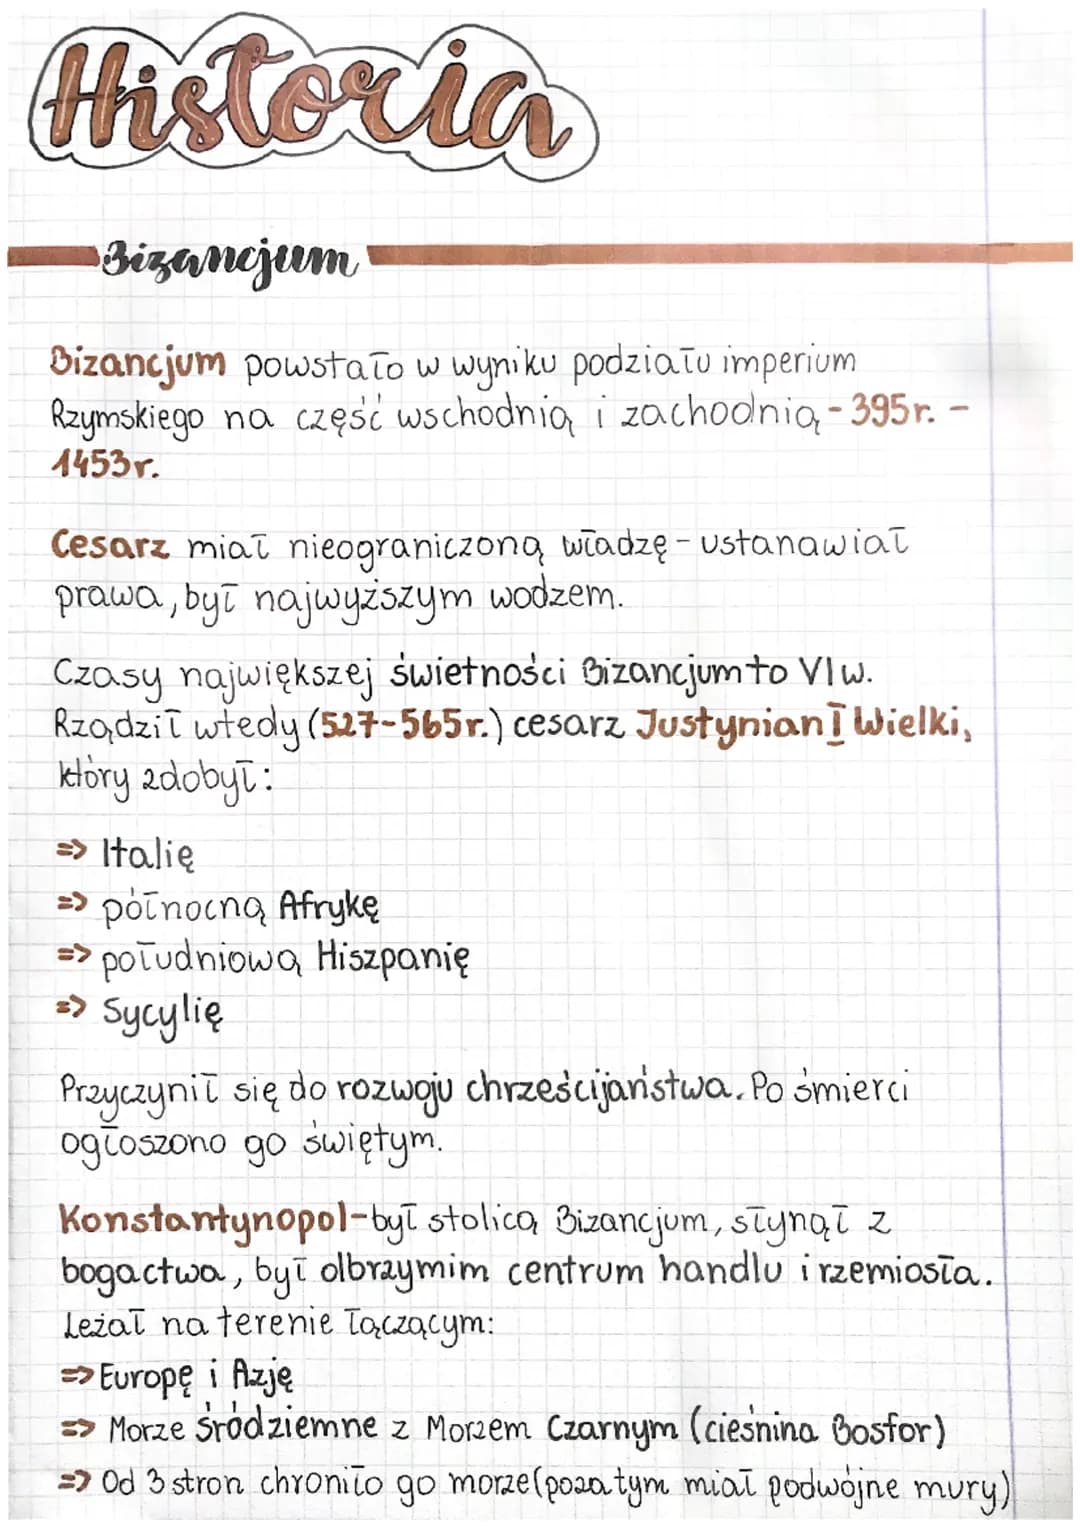 Historia
Bizancjum
Bizancjum powstało w wyniku podziału imperium
Rzymskiego na część wschodnią i zachodnią - 395r. -
1453r.
Cesarz miał nieograniczoną władzę - ustanawiał
prawa, był najwyższym wodzem.
Czasy największej świetności Bizancjum to VI w.
Rządził wtedy (527-565r.) cesarz Justynian I Wielki,
który zdobył:
=> Italię
=> północną Afrykę
=> południową Hiszpanię
=> Sycylię
Przyczynił się do rozwoju chrześcijaństwa. Po śmierci
ogłoszono go świętym.
Konstantynopol - był stolicą Bizancjum, słynął z
bogactwa, był olbrzymim centrum handlu i rzemiosła.
Leżał na terenie łączącym:
=> Europę i Azję
=> Morze Śródziemne z Morzem Czarnym (cieśnina Bosfor)
=> Od 3 stron chroniło go morze (poza tym miał podwójne mury)